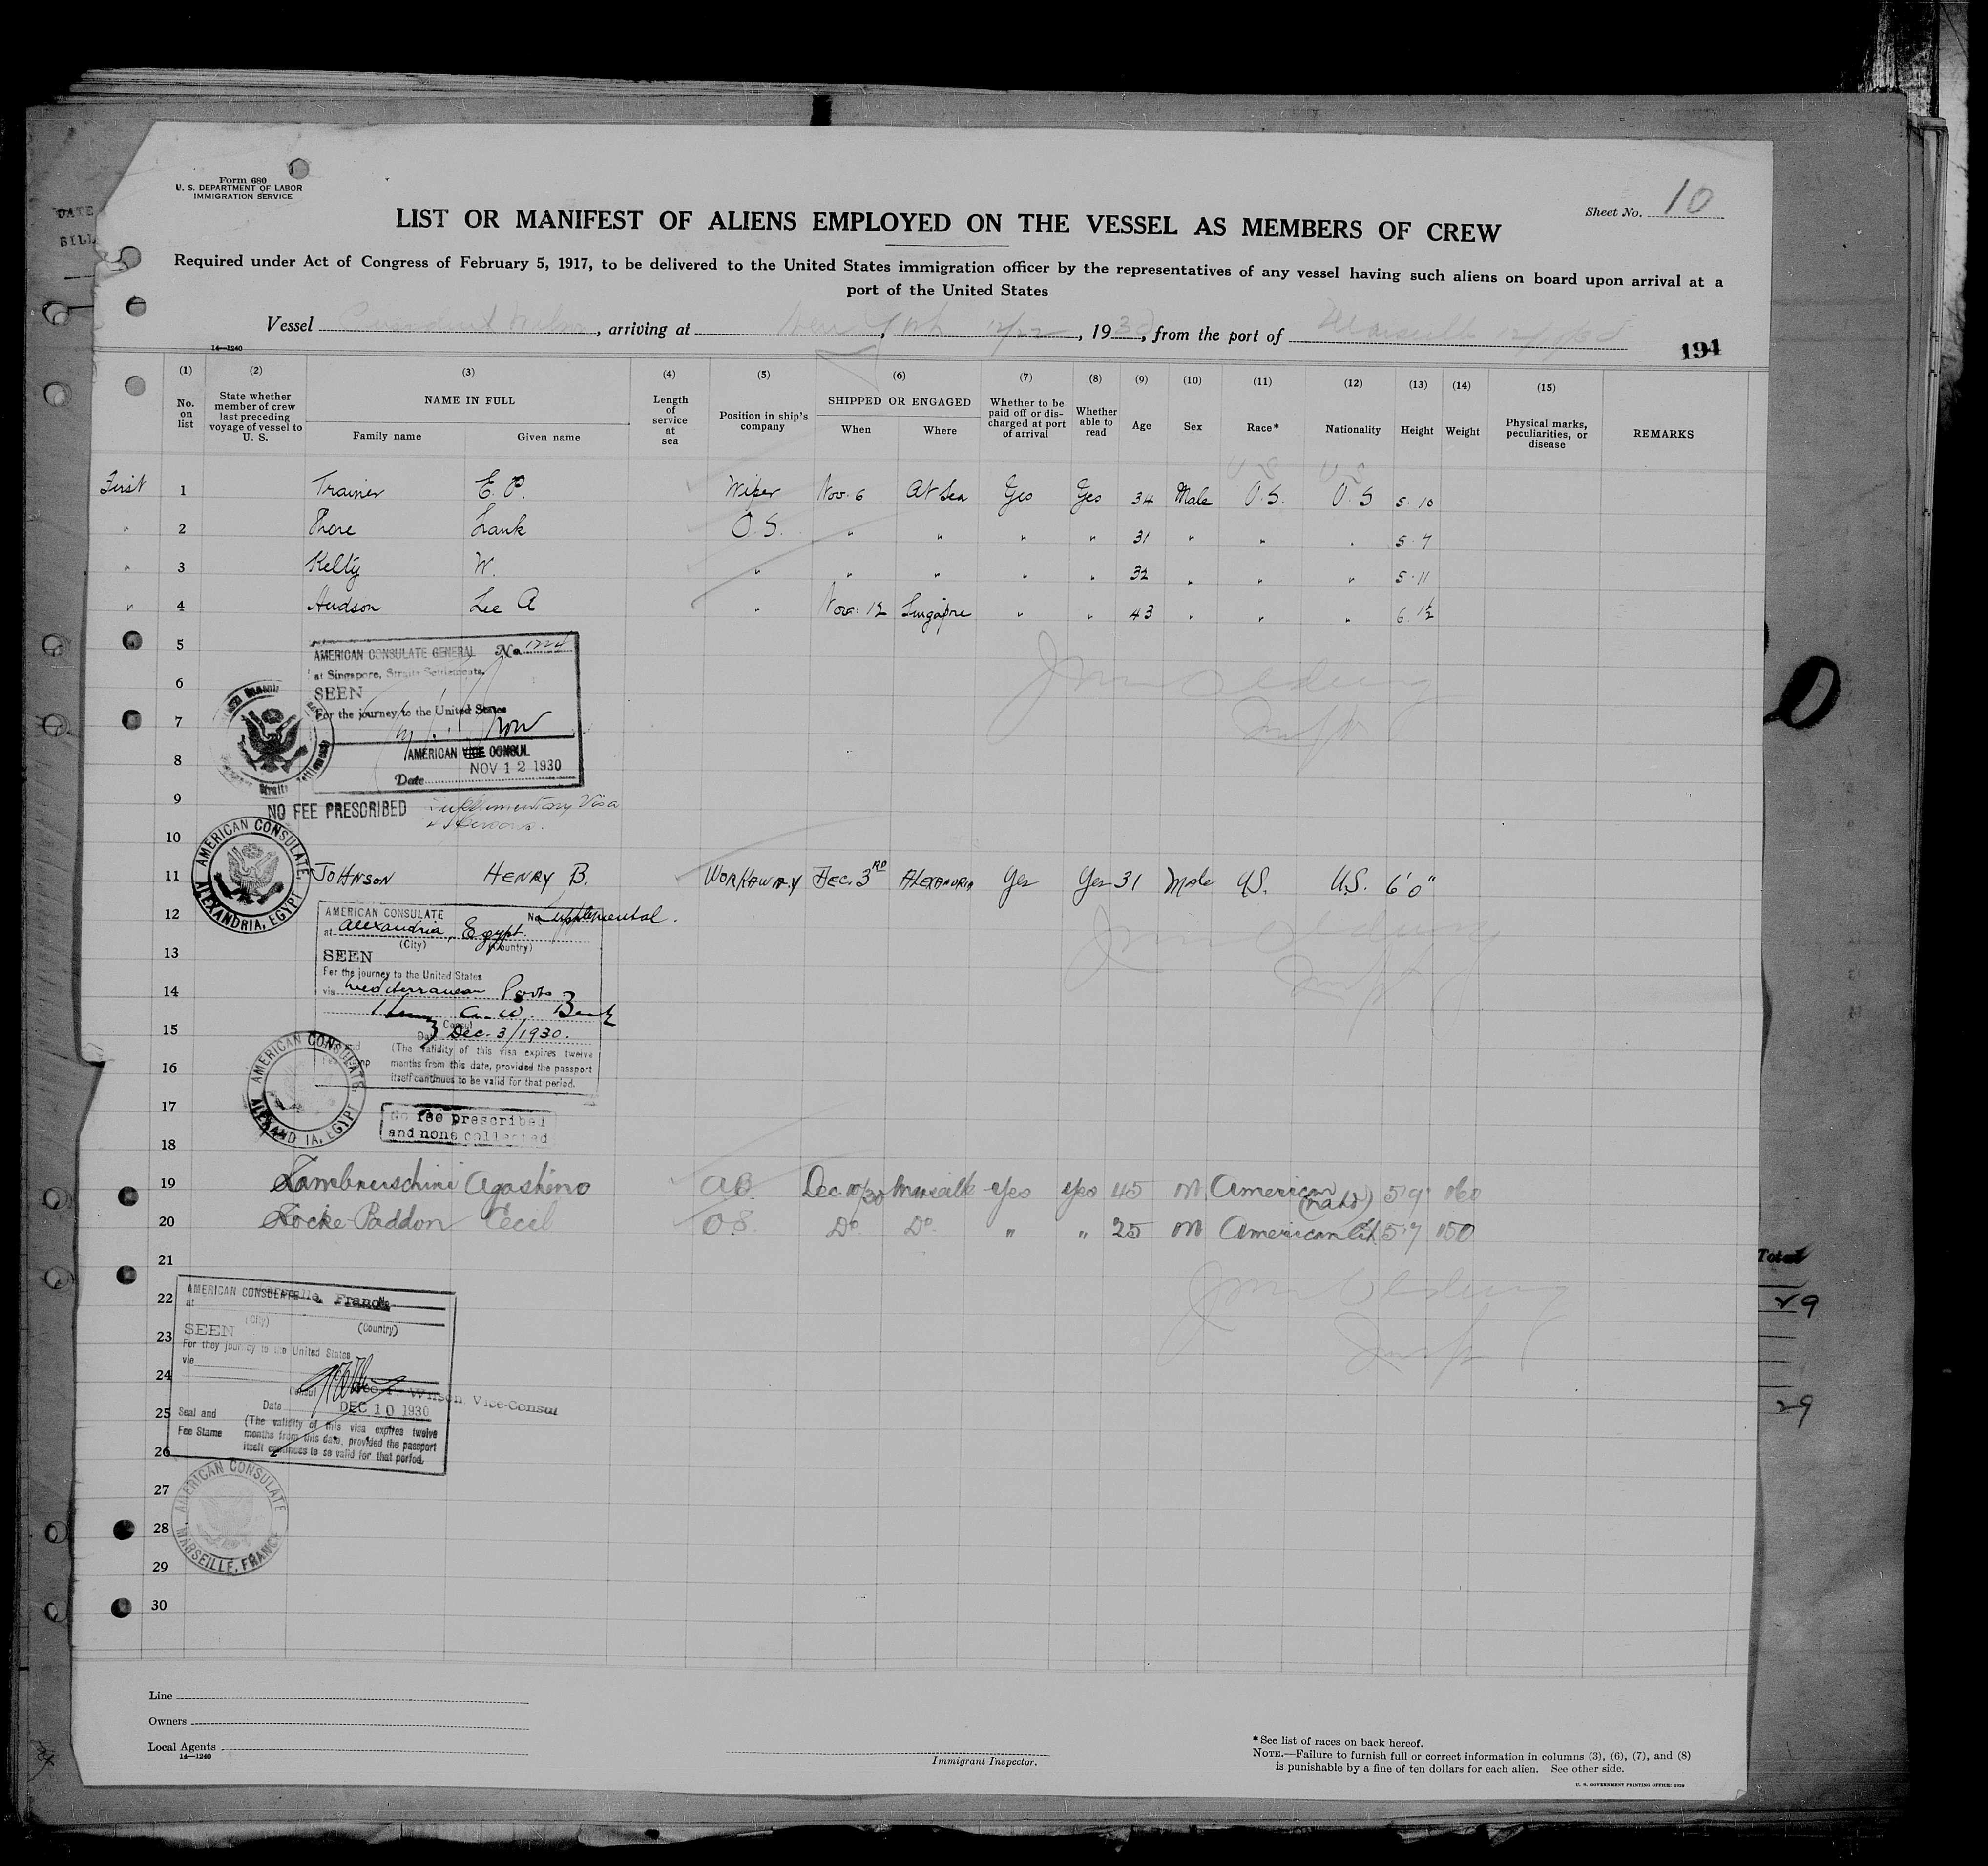 Form 680
U. S. DEPARTMENT OF LABOR
IMMIGRATION SERVICE
Sheet No. 10
LIST OR MANIFEST OF ALIENS EMPLOYED ON THE VESSEL AS MEMBERS OF CREW
Required under Act of Congress of February 5, 1917, to be delivered to the United States immigration officer by the representatives of any vessel having such aliens on board upon arrival at a
port of the United States
Vessel President Wilson, arriving at New York 12/22, 1930, from the port of Marseille
14—1240
194
(1) (2) (3) (4) (5) (6) (7) (8) (9) (10) (11) (12) (13) (14) (15)
No. on list
State whether member of crew last preceding voyage of vessel to U. S.
NAME IN FULL
Family name
Given name
Length of service at sea
Position in ship's company
SHIPPED OR ENGAGED
When
Where
Whether to be paid off or discharged at port of arrival
Whether able to read
Age
Sex
Race*
Nationality
Height
Weight
Physical marks, peculiarities, or disease
REMARKS
U S U S
First 1 Trainer E. P. Wiper Nov. 6 At Sea Yes Yes 34 Male U.S. U.S 5 10
" 2 O.S. " " " " 31 " " " 5 7
" 3 Kelty W. " " " " " 32 " " " 5 11
" 4 Hudson Lee A " Nov. 12 " " 43 " " " 6 1½
5
AMERICAN CONSULATE GENERAL No.
at Singapore, Straits Settlements.
6
SEEN
For the journey to the United States
7
AMERICAN VICE CONSUL
8
NOV 12 1930
Date
9
NO FEE PRESCRIBED Supplementary Visa
10
AMERICAN CONSULATE, ALEXANDRIA, EGYPT
11 JOHNSON HENRY B. WORKAWAY DEC. 3RD ALEXANDRIA Yes Yes 31 Male U.S. U.S. 6'0"
12
AMERICAN CONSULATE No. Supplemental.
at Alexandria, Egypt.
(City) (Country)
13
SEEN
For the journey to the United States
14
via Mediterranean Ports
Consul
15
Date Dec. 3/1930.
(The validity of this visa expires twelve
16
months from this date, provided the passport
itself continues to be valid for that period.
AMERICAN CONSULATE, ALEXANDRIA, EGYPT
17
No fee prescribed
and none collected
18
19 AB. Dec 10/30 Marseille Yes yes 45 M American 5 9 160
20 Locke-Paddon Cecil O.S. Do. Do. " " 25 M American 5 7 150
21
22
AMERICAN CONSULATE
at France
(City) (Country)
23
SEEN
For the journey to the United States
via
24
Consul
Wilson, Vice-Consul
25
Date DEC 10 1930
Seal and
Fee Stamp
(The validity of this visa expires twelve
months from this date, provided the passport
itself continues to be valid for that period.
26
AMERICAN CONSULATE MARSEILLE, FRANCE
27
28
29
30
Total
29
29
Line
Owners
Local Agents
14—1240
Immigrant Inspector.
*See list of races on back hereof.
NOTE.—Failure to furnish full or correct information in columns (3), (6), (7), and (8)
is punishable by a fine of ten dollars for each alien. See other side.
U. S. GOVERNMENT PRINTING OFFICE: 1929